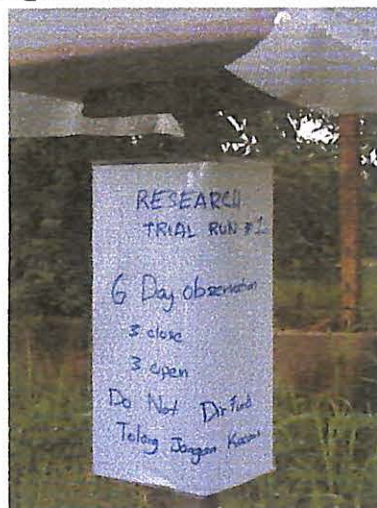 RESEARCH
TRIAL RUN #1
6 Day observation
3 close
3 open
Do Not
Tolong Jangan Kacau